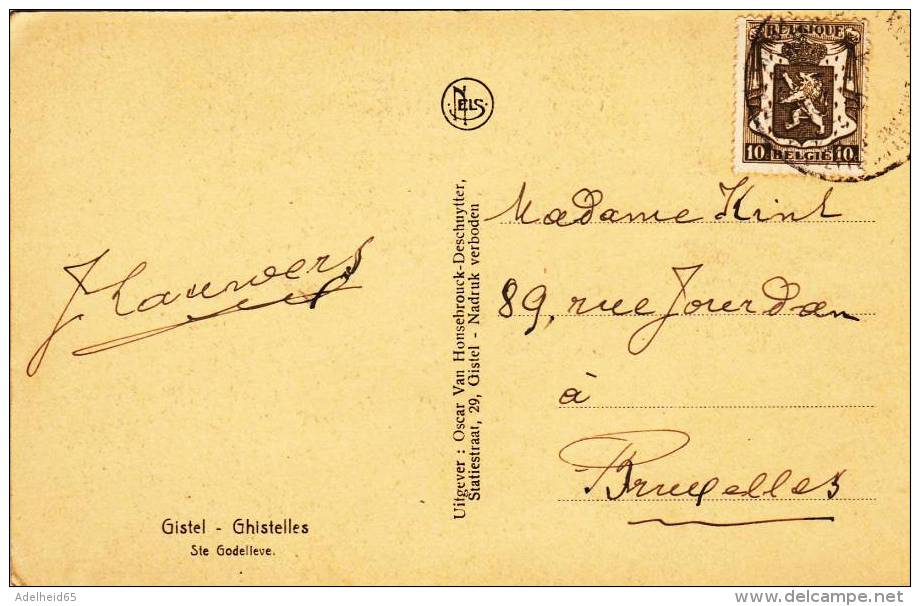 BELGIQUE
10 BELGIË 10
NELS
Madame Kint
89, rue Jourdan
à
Bruxelles
J Lauwers
Uitgever : Oscar Van Honsebrouck-Deschuytter,
Statiestraat, 29, Gistel - Nadruk verboden
Gistel - Ghistelles
Ste Godelieve.
Adelheid65
delcampe.net